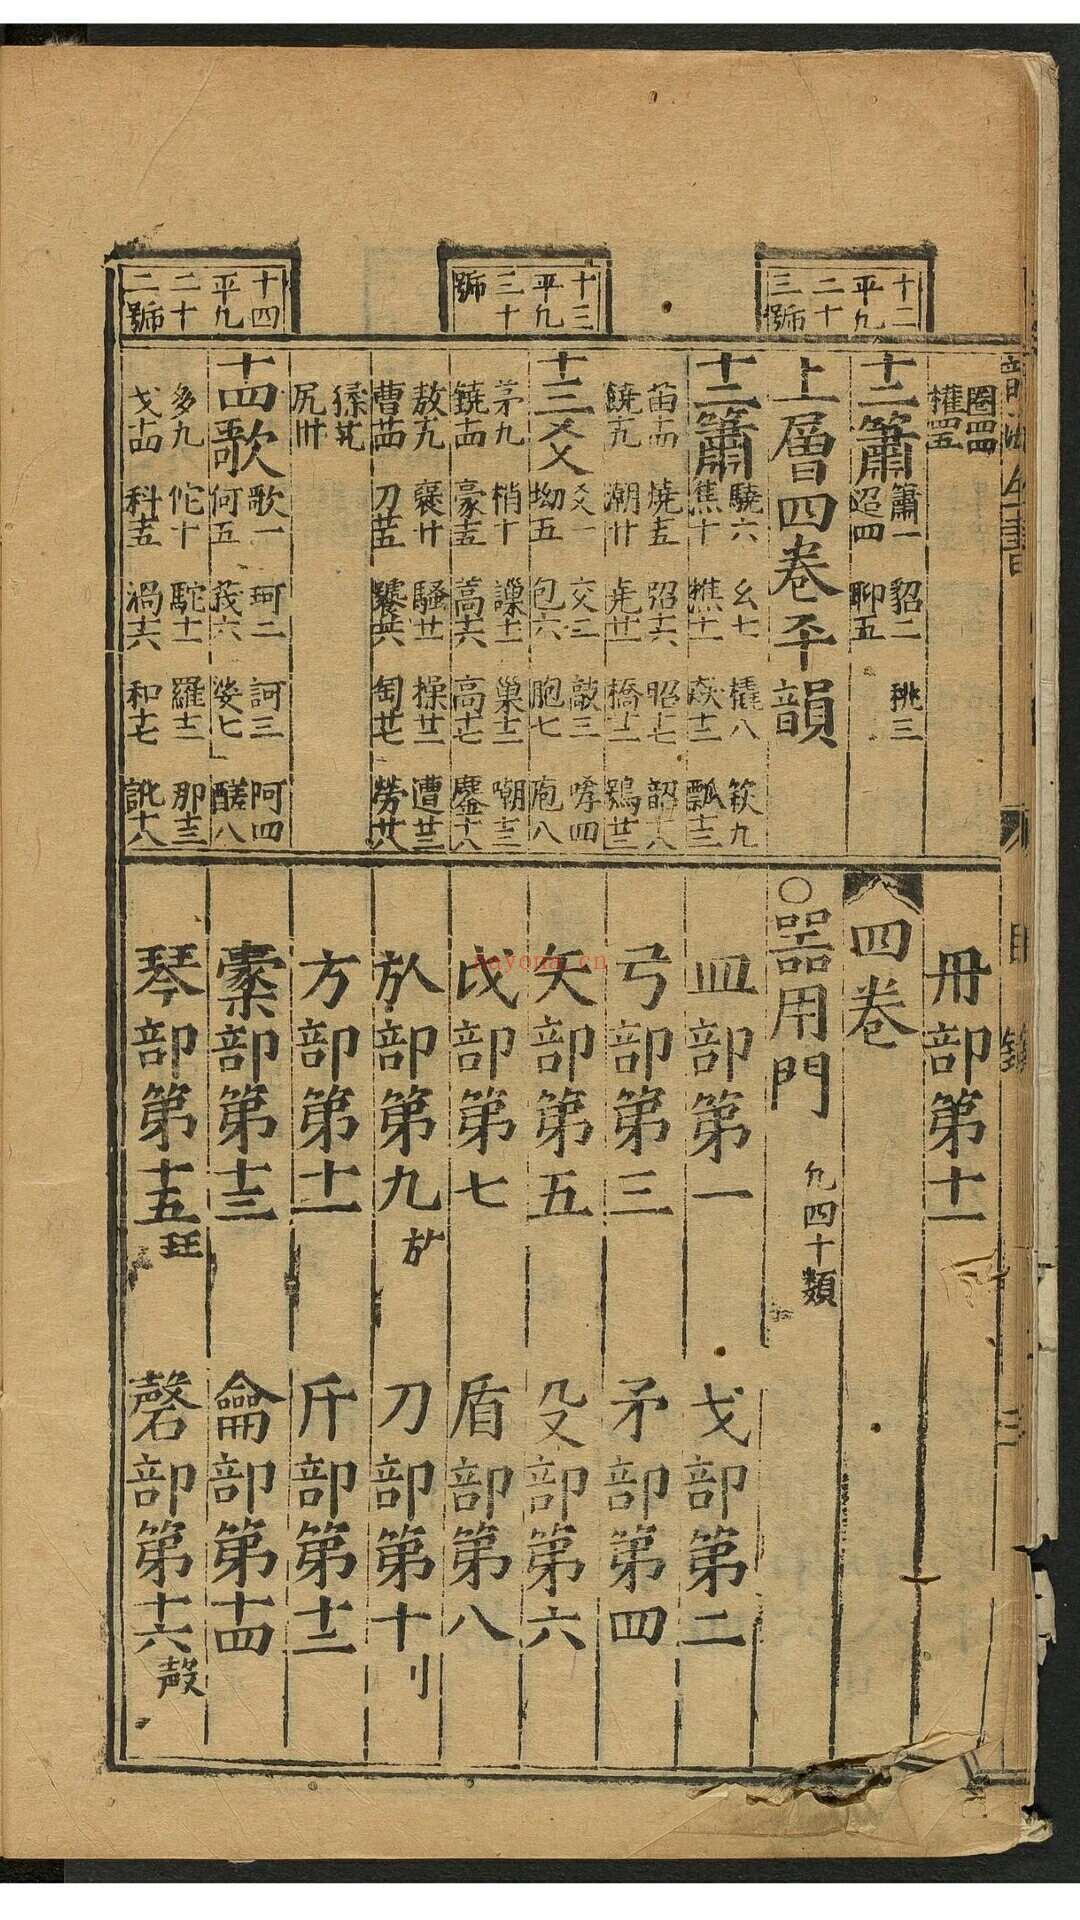 十二平凡二十三號
十三平凡三十號
十四平凡二十二號
圈四四
權四五
十二簫 簫一 貂二 祧三
迢四 聊五
上層四卷平韻
十二簫 驍六 幺七 橇八 篍九
焦十 樵十一 猋十二 瓢十三
苗十四 燒十五 弨十六 昭十七 韶十八
饒十九 潮廿 堯廿一 橋廿二 鴞廿三
十三爻 爻一 交二 敲三 哮四
坳五 包六 胞七 庖八
茅九 梢十 謙十一 巢十二 嘲十三
鐃十四 豪十五 蒿十六 高十七 鏖十八
敖十九 襃廿 騷廿一 操廿二 遭廿三
曹廿四 刀廿五 饕廿六 匋廿七 勞廿八
猱廿九
尻卅
十四歌 歌一 珂二 訶三 阿四
何五 莪六 婆七 醝八
多九 佗十 駝十一 羅十二 那十三
戈十四 科十五 渦十六 和十七 訛十八
目錄
冊部第十一
四卷
○器用門 凡四十類
皿部第一 戈部第二
弓部第三 矛部第四
矢部第五 殳部第六
戉部第七 盾部第八
㫃部第九 㫄 刀部第十 刂
方部第十一 斤部第十二
㯻部第十三 龠部第十四
琴部第十五 珡 磬部第十六 殸